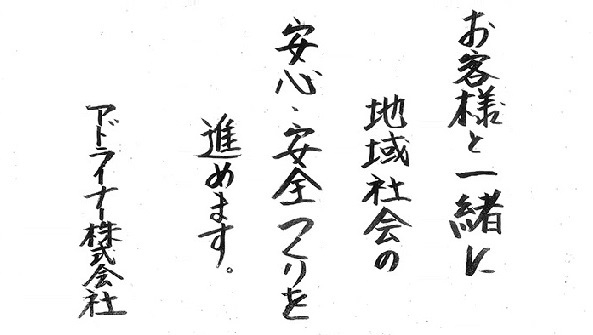 お客様と一緒に
地域社会の
安心・安全つくりを
進めます。
アドライナー株式会社